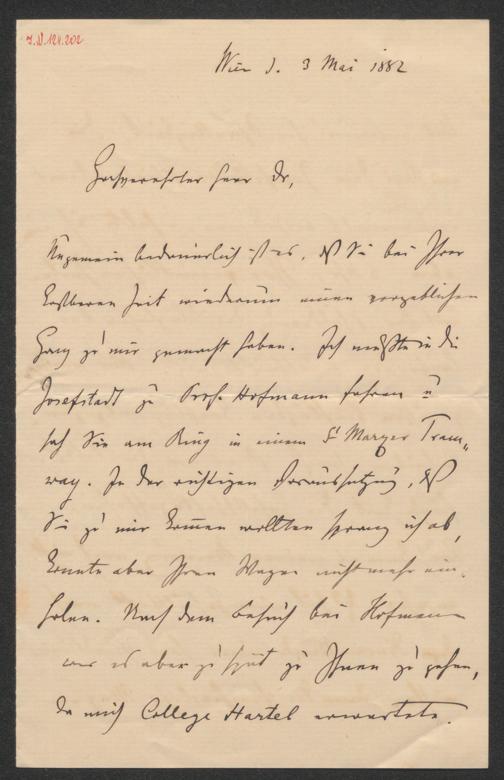 J.N. 124.202
Wien d. 3 Mai 1882
Hochverehrter Herr Dr,
Ungemein bedauerlich ist es, dß Sie bei Ihrer
kostbaren Zeit wiederum einen vergeblichen
Gang zu mir gemacht haben. Ich mußte in die
Josefstadt zu Prof. Hofmann fahren u
sah Sie am Ring in einem St Marxer Tram„
way. In der richtigen Voraussetzung, dß
Sie zu mir kommen wollten sprang ich ab,
konnte aber Ihren Wagen nicht mehr ein-
holen. Nach dem Besuch bei Hofmann
war es aber zu spät zu Ihnen zu gehen,
da mich College Hartel erwartete.